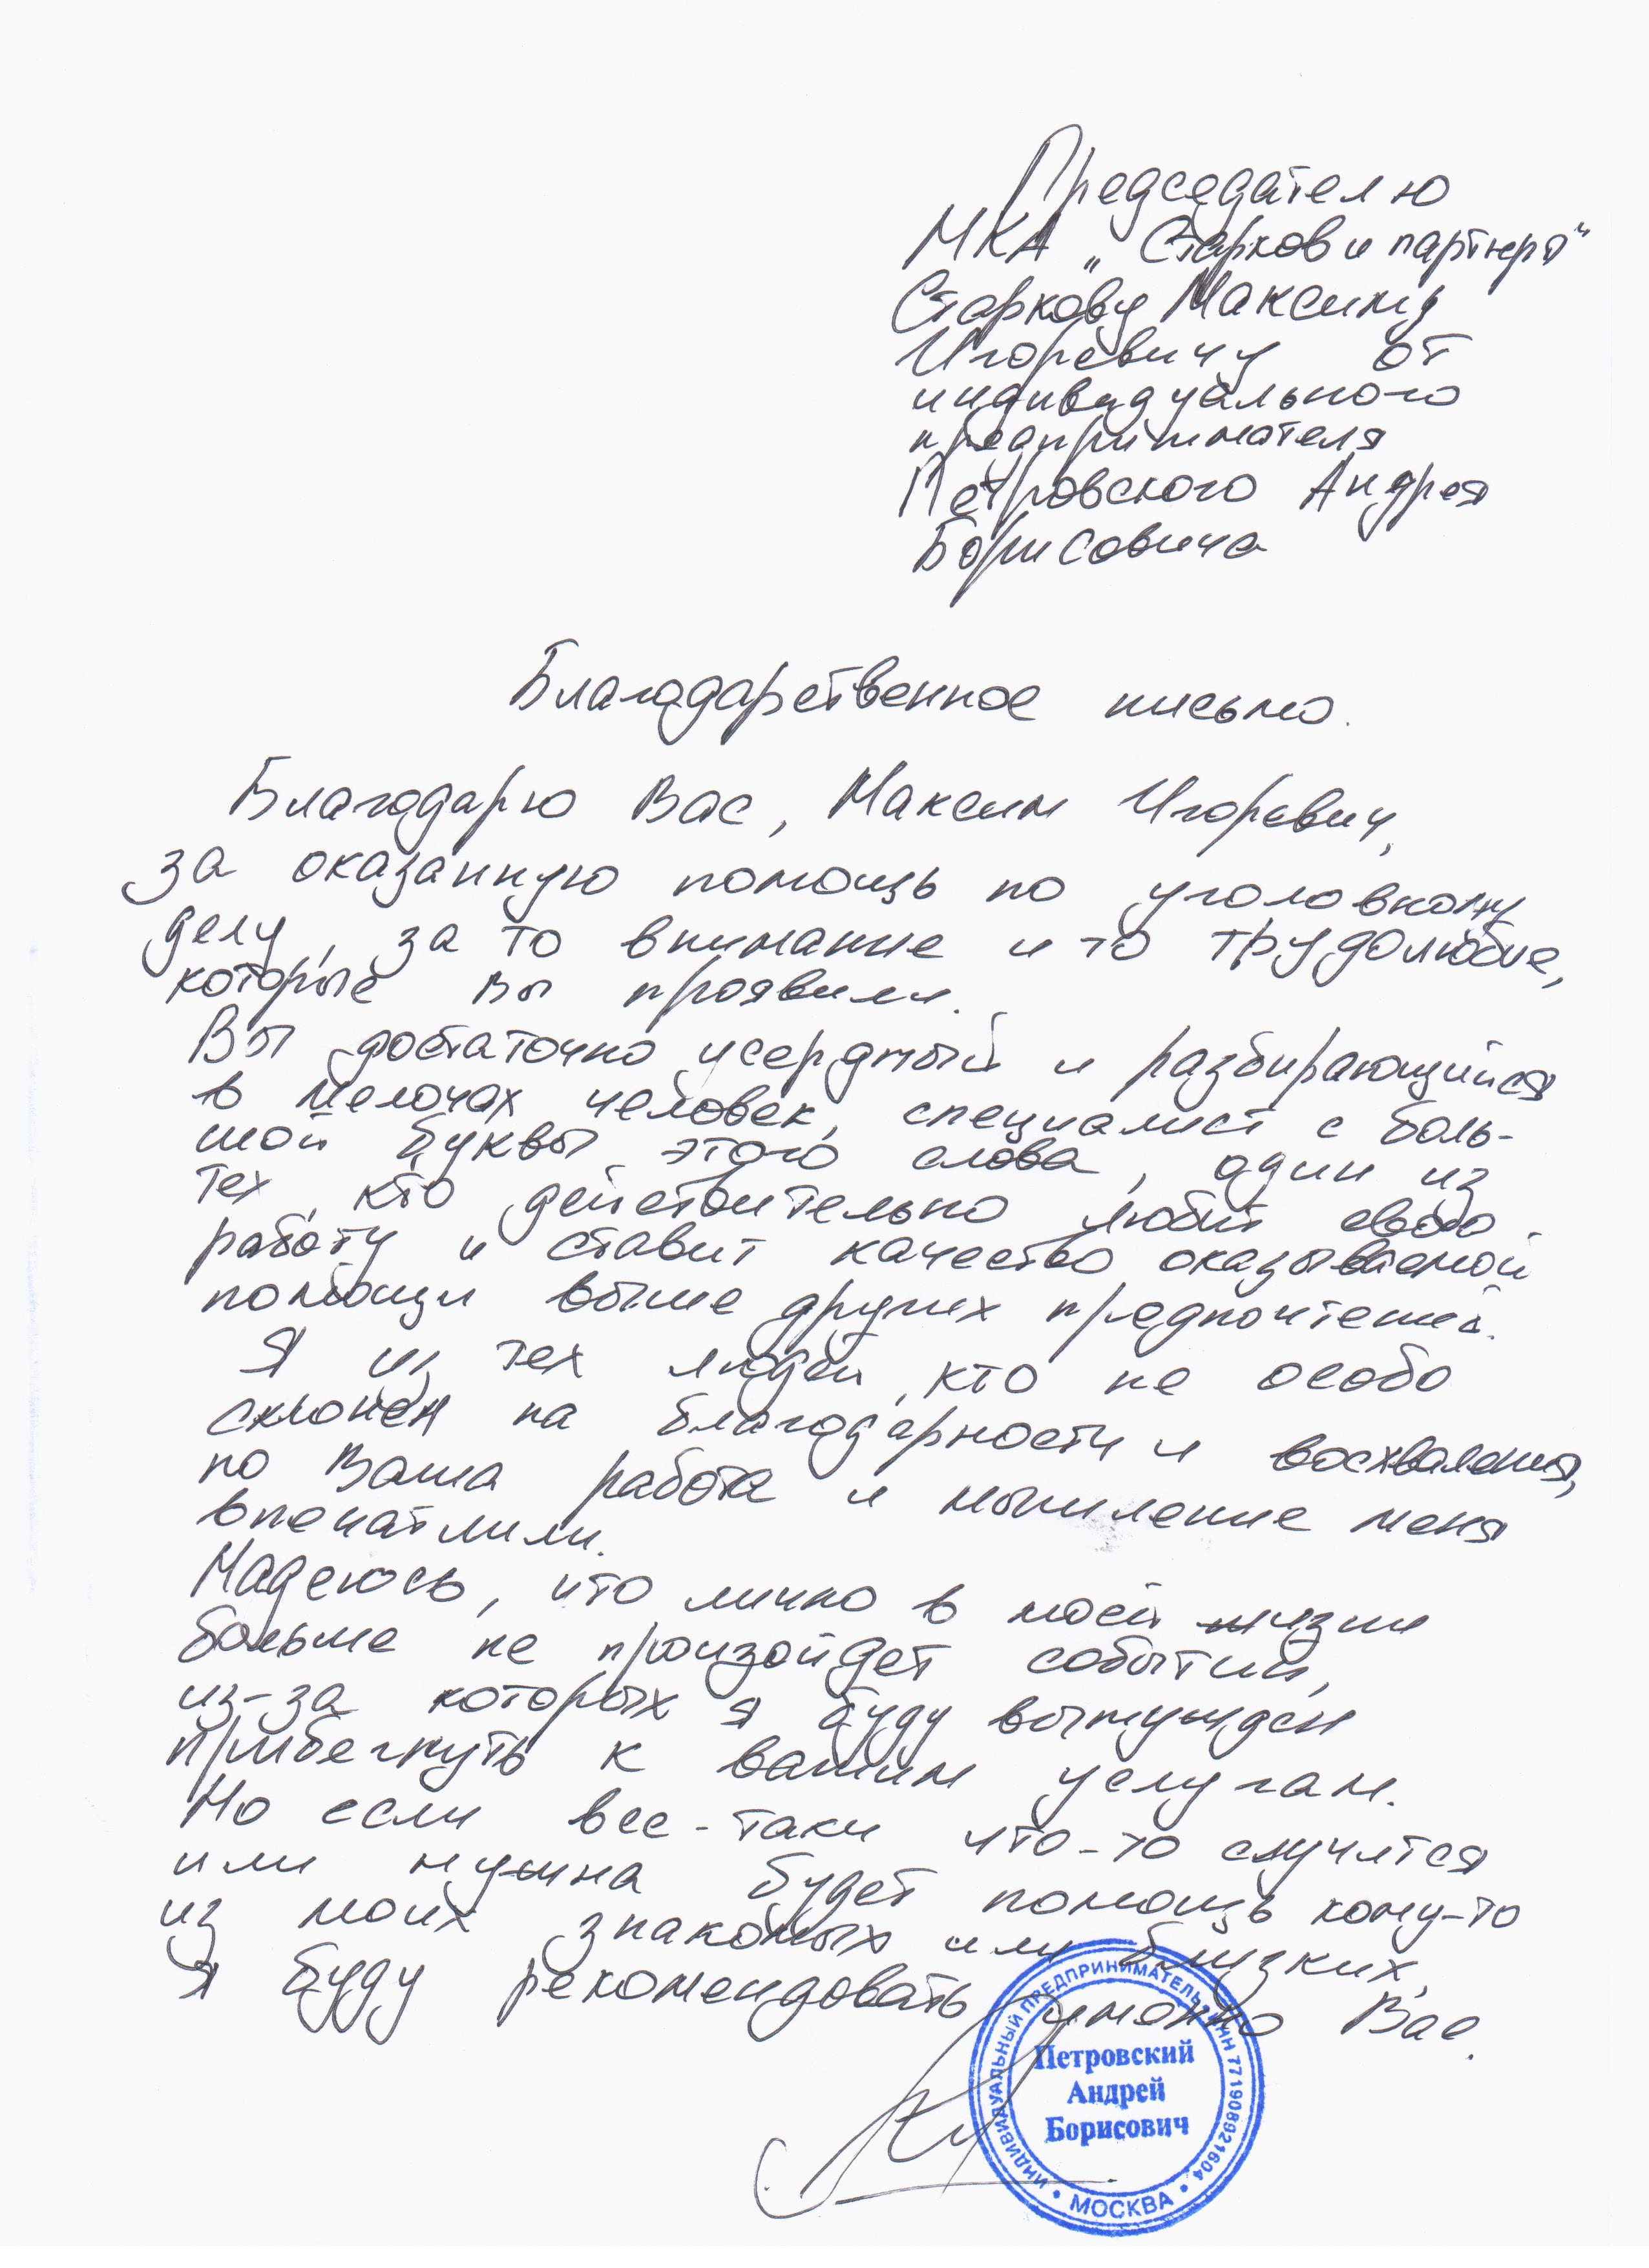 Председателю
МКА „Старков и партнеры“
Старкову Максиму
Игоревичу от
индивидуального
предпринимателя
Петровского Андрея
Борисовича
Благодарственное письмо.
Благодарю Вас, Максим Игоревич,
за оказанную помощь по уголовному
делу, за то внимание и то трудолюбие,
которые вы проявили.
Вы достаточно усердный и разбирающийся
в мелочах человек, специалист с боль-
шой буквы этого слова, один из
тех, кто действительно любит свою
работу и ставит качество оказываемой
помощи выше других предпочтений.
Я из тех людей, кто не особо
склонен на благодарности и восхваления,
но Ваша работа и мышление меня
впечатлили.
Надеюсь, что лично в моей жизни
больше не произойдет событий,
из-за которых я буду вынужден
прибегнуть к вашим услугам.
Но если все-таки что-то случится
или нужна будет помощь кому-то
из моих знакомых или близких,
я буду рекомендовать именно Вас.
ИНДИВИДУАЛЬНЫЙ ПРЕДПРИНИМАТЕЛЬ • ИНН 771908921604
Петровский
Андрей
Борисович
• МОСКВА •